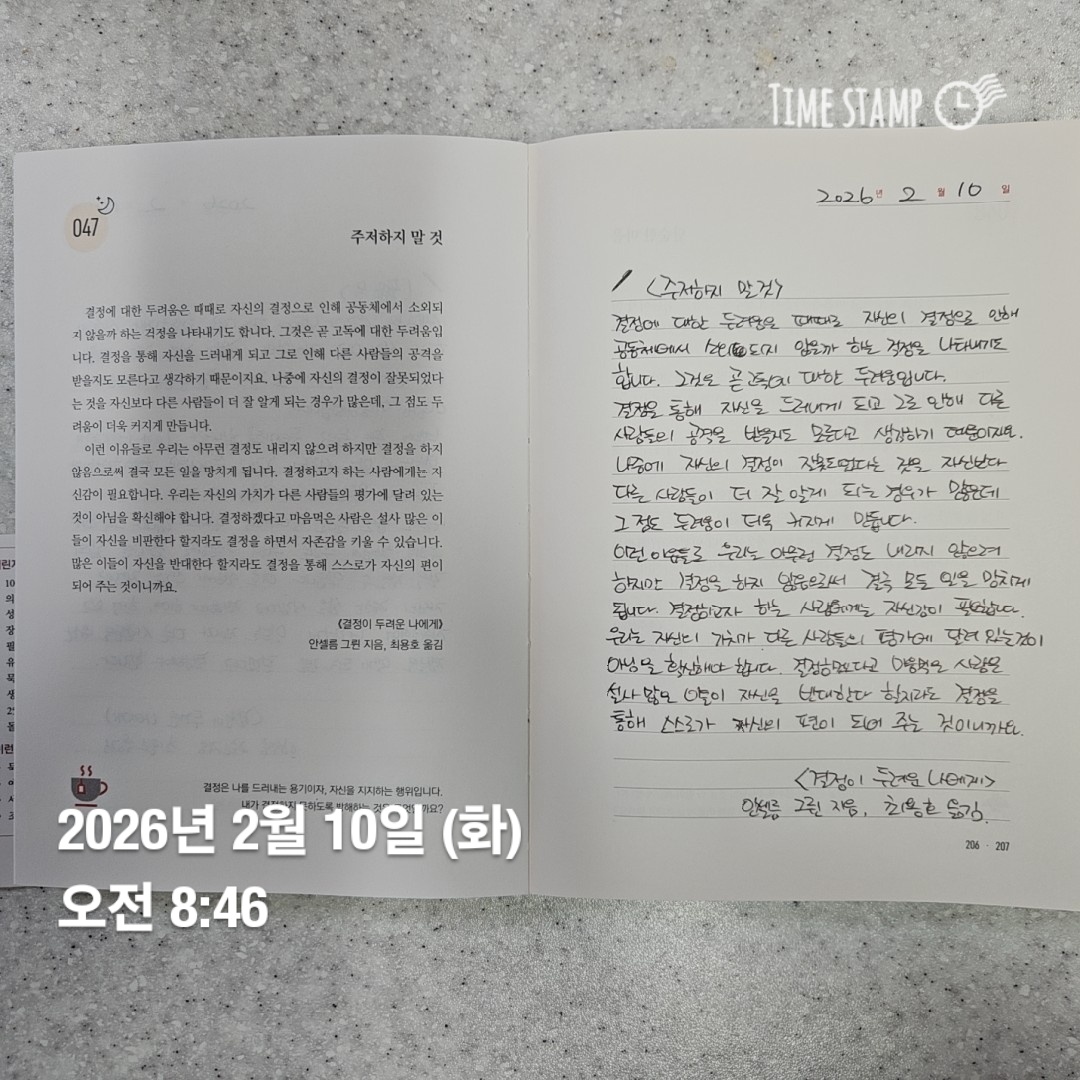 TIME STAMP
047
주저하지 말 것
결정에 대한 두려움은 때때로 자신의 결정으로 인해 공동체에서 소외되
지 않을까 하는 걱정을 나타내기도 합니다. 그것은 곧 고독에 대한 두려움입
니다. 결정을 통해 자신을 드러내게 되고 그로 인해 다른 사람들의 공격을
받을지도 모른다고 생각하기 때문이지요. 나중에 자신의 결정이 잘못되었다
는 것을 자신보다 다른 사람들이 더 잘 알게 되는 경우가 많은데, 그 점도 두
려움이 더욱 커지게 만듭니다.
이런 이유들로 우리는 아무런 결정도 내리지 않으려 하지만 결정을 하지
않음으로써 결국 모든 일을 망치게 됩니다. 결정하고자 하는 사람에게는 자
신감이 필요합니다. 우리는 자신의 가치가 다른 사람들의 평가에 달려 있는
것이 아님을 확신해야 합니다. 결정하겠다고 마음먹은 사람은 설사 많은 이
들이 자신을 비판한다 할지라도 결정을 하면서 자존감을 키울 수 있습니다.
많은 이들이 자신을 반대한다 할지라도 결정을 통해 스스로가 자신의 편이
되어 주는 것이니까요.
《결정이 두려운 나에게》
안셀름 그륀 지음, 최용호 옮김
결정은 나를 드러내는 용기이자, 자신을 지지하는 행위입니다.
2026년 2월 10일
<주저하지 말 것>
결정에 대한 두려움은 때때로 자신의 결정으로 인해
공동체에서 소외되지 않을까 하는 걱정을 나타내기도
합니다. 그것은 곧 고독에 대한 두려움입니다.
결정을 통해 자신을 드러내게 되고 그로 인해 다른
사람들의 공격을 받을지도 모른다고 생각하기 때문이지요.
나중에 자신의 결정이 잘못되었다는 것을 자신보다
다른 사람들이 더 잘 알게 되는 경우가 많은데
그 점도 두려움이 더욱 커지게 만듭니다.
이런 이유들로 우리는 아무런 결정도 내리지 않으려
하지만 결정을 하지 않음으로써 결국 모든 일을 망치게
됩니다. 결정하고자 하는 사람들에게는 자신감이 필요합니다.
우리는 자신의 가치가 다른 사람들의 평가에 달려 있는 것이
아님을 확신해야 합니다. 결정하겠다고 마음먹은 사람은
설사 많은 이들이 자신을 반대한다 할지라도 결정을
통해 스스로가 자신의 편이 되어 주는 것이니까요.
<결정이 두려운 나에게>
안셀름 그륀 지음, 최용호 옮김.
206 · 207
2026년 2월 10일 (화)
오전 8:46